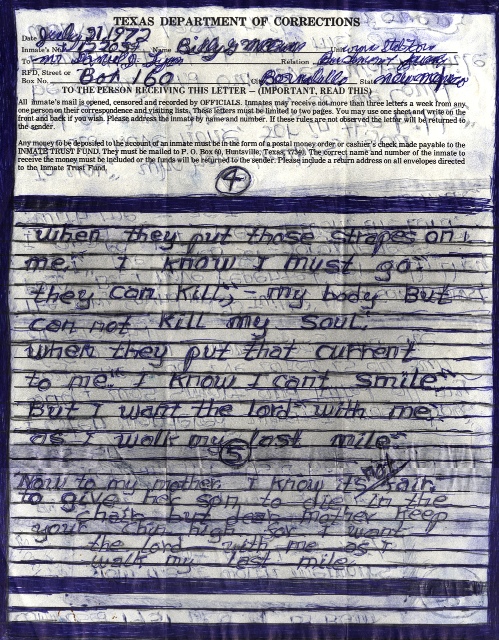 TEXAS DEPARTMENT OF CORRECTIONS
Date July 21, 1972
Inmate's No. Name Billy G McCune Unit
To Mr Daniel J. Lyon Relation
RFD, Street or Box No. Box 160 City Bernalillo State New Mexico
TO THE PERSON RECEIVING THIS LETTER — (IMPORTANT, READ THIS)
All inmate's mail is opened, censored and recorded by OFFICIALS. Inmates may receive not more than three letters a week from any
one person on their correspondence and visiting lists. These letters must be limited to two pages. You may use one sheet and write on the
front and back if you wish. Please address the inmate by name and number. If these rules are not observed the letter will be returned to
the sender.
Any money to be deposited to the account of an inmate must be in the form of a postal money order or cashier's check made payable to the
INMATE TRUST FUND. They must be mailed to P. O. Box 60, Huntsville, Texas, 77340. The correct name and number of the inmate to
receive the money must be included or the funds will be returned to the sender. Please include a return address on all envelopes directed
to the Inmate Trust Fund.
4
when they put those strapes on
me" I know I must go"
they can Kill, - my body But
can not Kill my Soul.
when they put that current
to me" I know I cant smile"
But I want the lord" with me
as I walk my last mile"
5
Now to my mother I know it's not fair
to give her son to die in the
chair but dear mother Keep
your chin high for I want
the lord with me as I
walk my last mile.